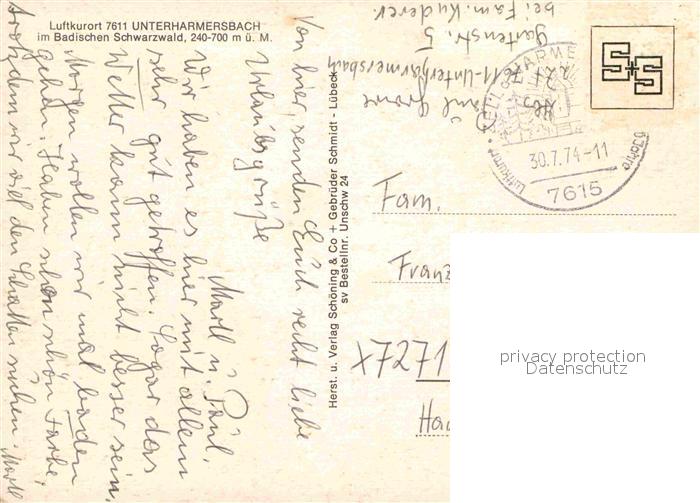 Luftkurort 7611 UNTERHARMERSBACH
im Badischen Schwarzwald, 240-700 m ü. M.
Von hier senden Euch recht liebe
Urlaubsgrüße
Martl u. Paul.
Wir haben es hier mit allem
sehr gut getroffen. Sogar das
Wetter kann nicht besser sein,
Morgen wollen wir mal baden
gehen. Haben schon schön Farbe,
trotzdem wir viel den Schatten suchen. Martl
Herst. u. Verlag Schöning & Co + Gebrüder Schmidt - Lübeck
sv Bestellnr. Unschw 24
7611 - Unterharmersbach
Gartenstr. 5
bei Fam. Kuderer.
ZELL a HARME
30.7.74-11
7615
Luftkurort
Jahre
Fam.
Franz
X7271
Ha
privacy protection
Datenschutz